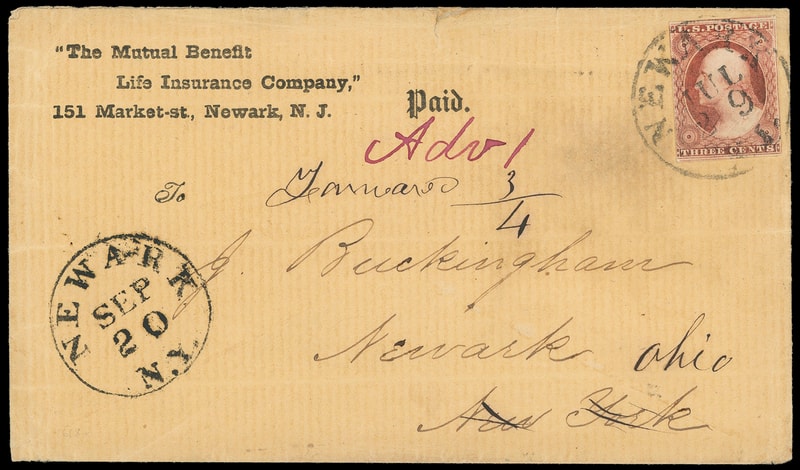 "The Mutual Benefit
Life Insurance Company,"
151 Market-st., Newark, N. J.
Paid.
U.S. POSTAGE
THREE CENTS
NEWARK
JULY
9
Adv 1
To
3
4
J. Buckingham
Newark Ohio
New York
NEWARK
SEP
20
N.Y.